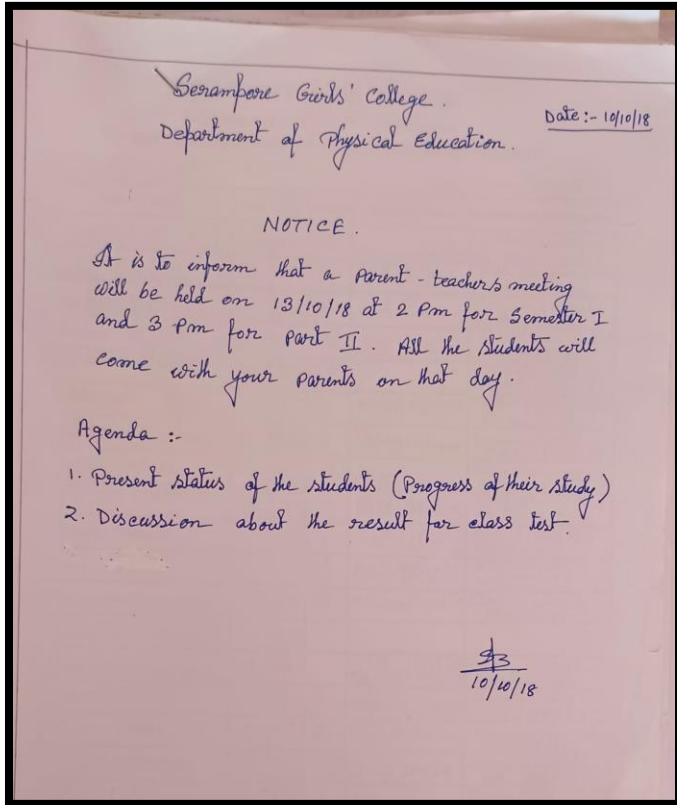 Serampore Girls' College.
Date :- 10/10/18
Department of Physical Education.
NOTICE.
It is to inform that a parent - teachers meeting
will be held on 13/10/18 at 2 Pm for Semester I
and 3 Pm for part II. All the students will
come with your parents on that day.
Agenda :-
1. Present status of the students (Progress of their study)
2. Discussion about the result for class test.
10/10/18